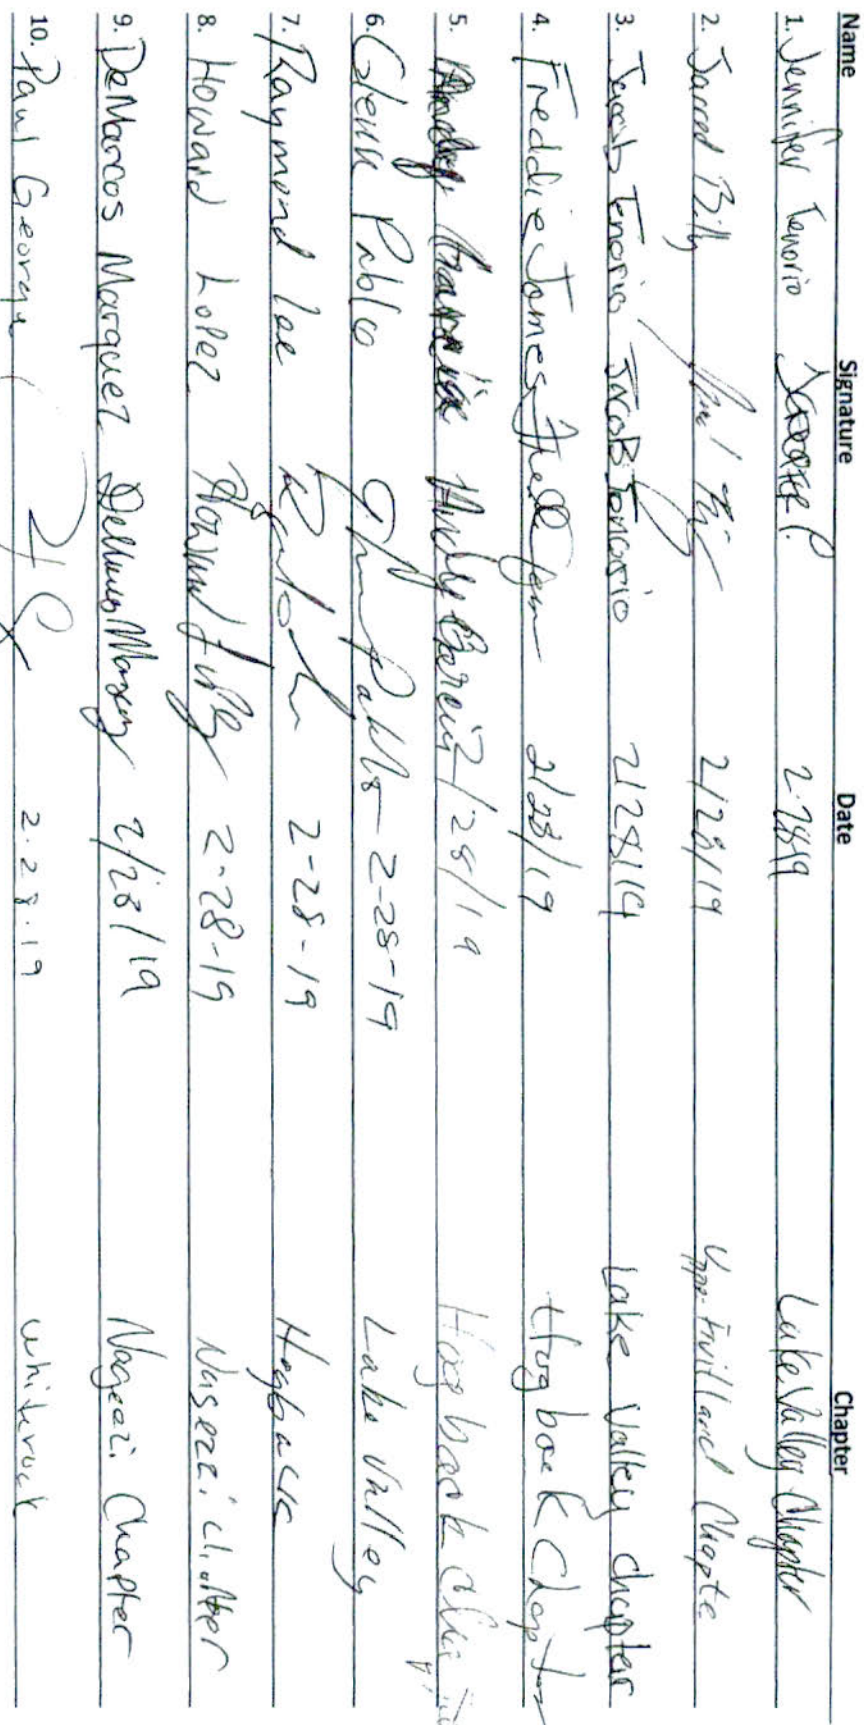 Name Signature Date Chapter
1. Jennifer Tenorio 2-28-19 Lake Valley Chapter
2. Jarred Billy 2/28/19 Upper Fruitland Chapte
3. Jacob Tenorio Jacob Tenorio 2/28/19 Lake Valley chapter
4. Freddie James 2/28/19 Hogback Chapter
5. Garcia 2/28/19 Hogback
6. Glenn Pablo Glenn Pablo 2-28-19 Lake Valley
7. Raymond Lee 2-28-19 Hogback
8. Howard Lopez Howard 2-28-19 Nageezi Chapter
9. DeMarcos Marquez 2/28/19 Nageezi Chapter
10. Paul George 2.28.19 Whiterock